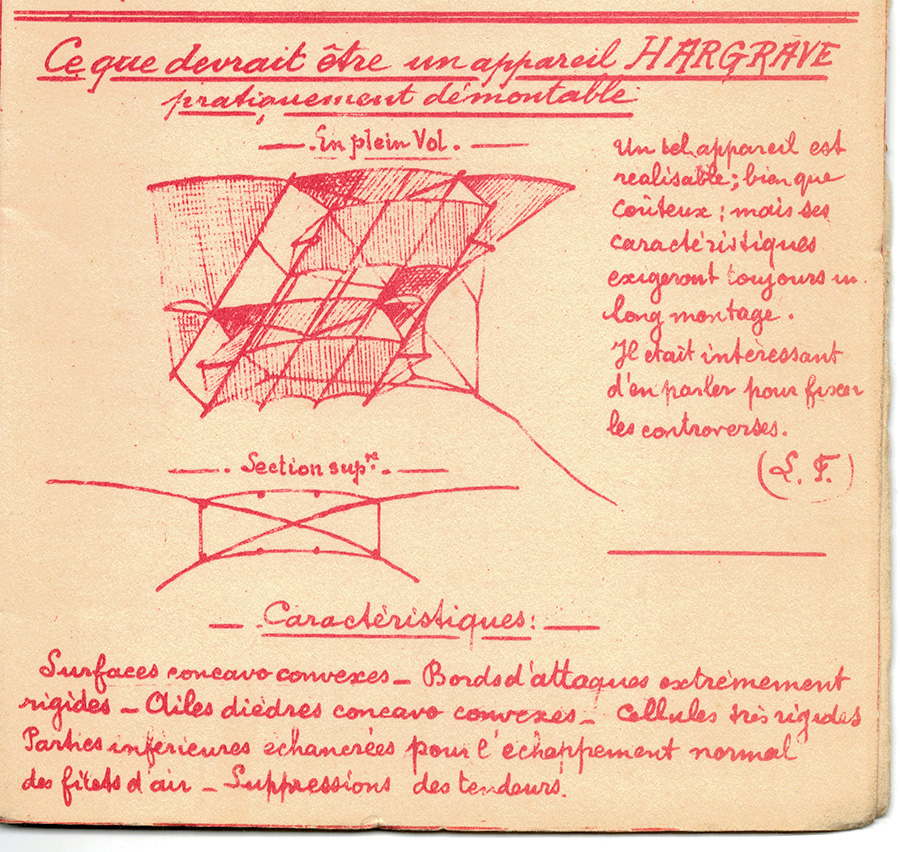 Ce que devrait être un appareil HARGRAVE
pratiquement démontable
En plein Vol.
Un tel appareil est
réalisable ; bien que
coûteux ; mais ses
caractéristiques
exigeront toujours un
long montage.
Il était intéressant
d'en parler pour fixer
les controverses.
(L. F.)
Section supre.
Caractéristiques :
Surfaces concavo convexes _ Bords d'attaques extrêmement
rigides _ Ailes dièdres concavo convexes _ Cellules très rigides
Parties inférieures échancrées pour l'échappement normal
des filets d'air _ Suppressions des tendeurs.